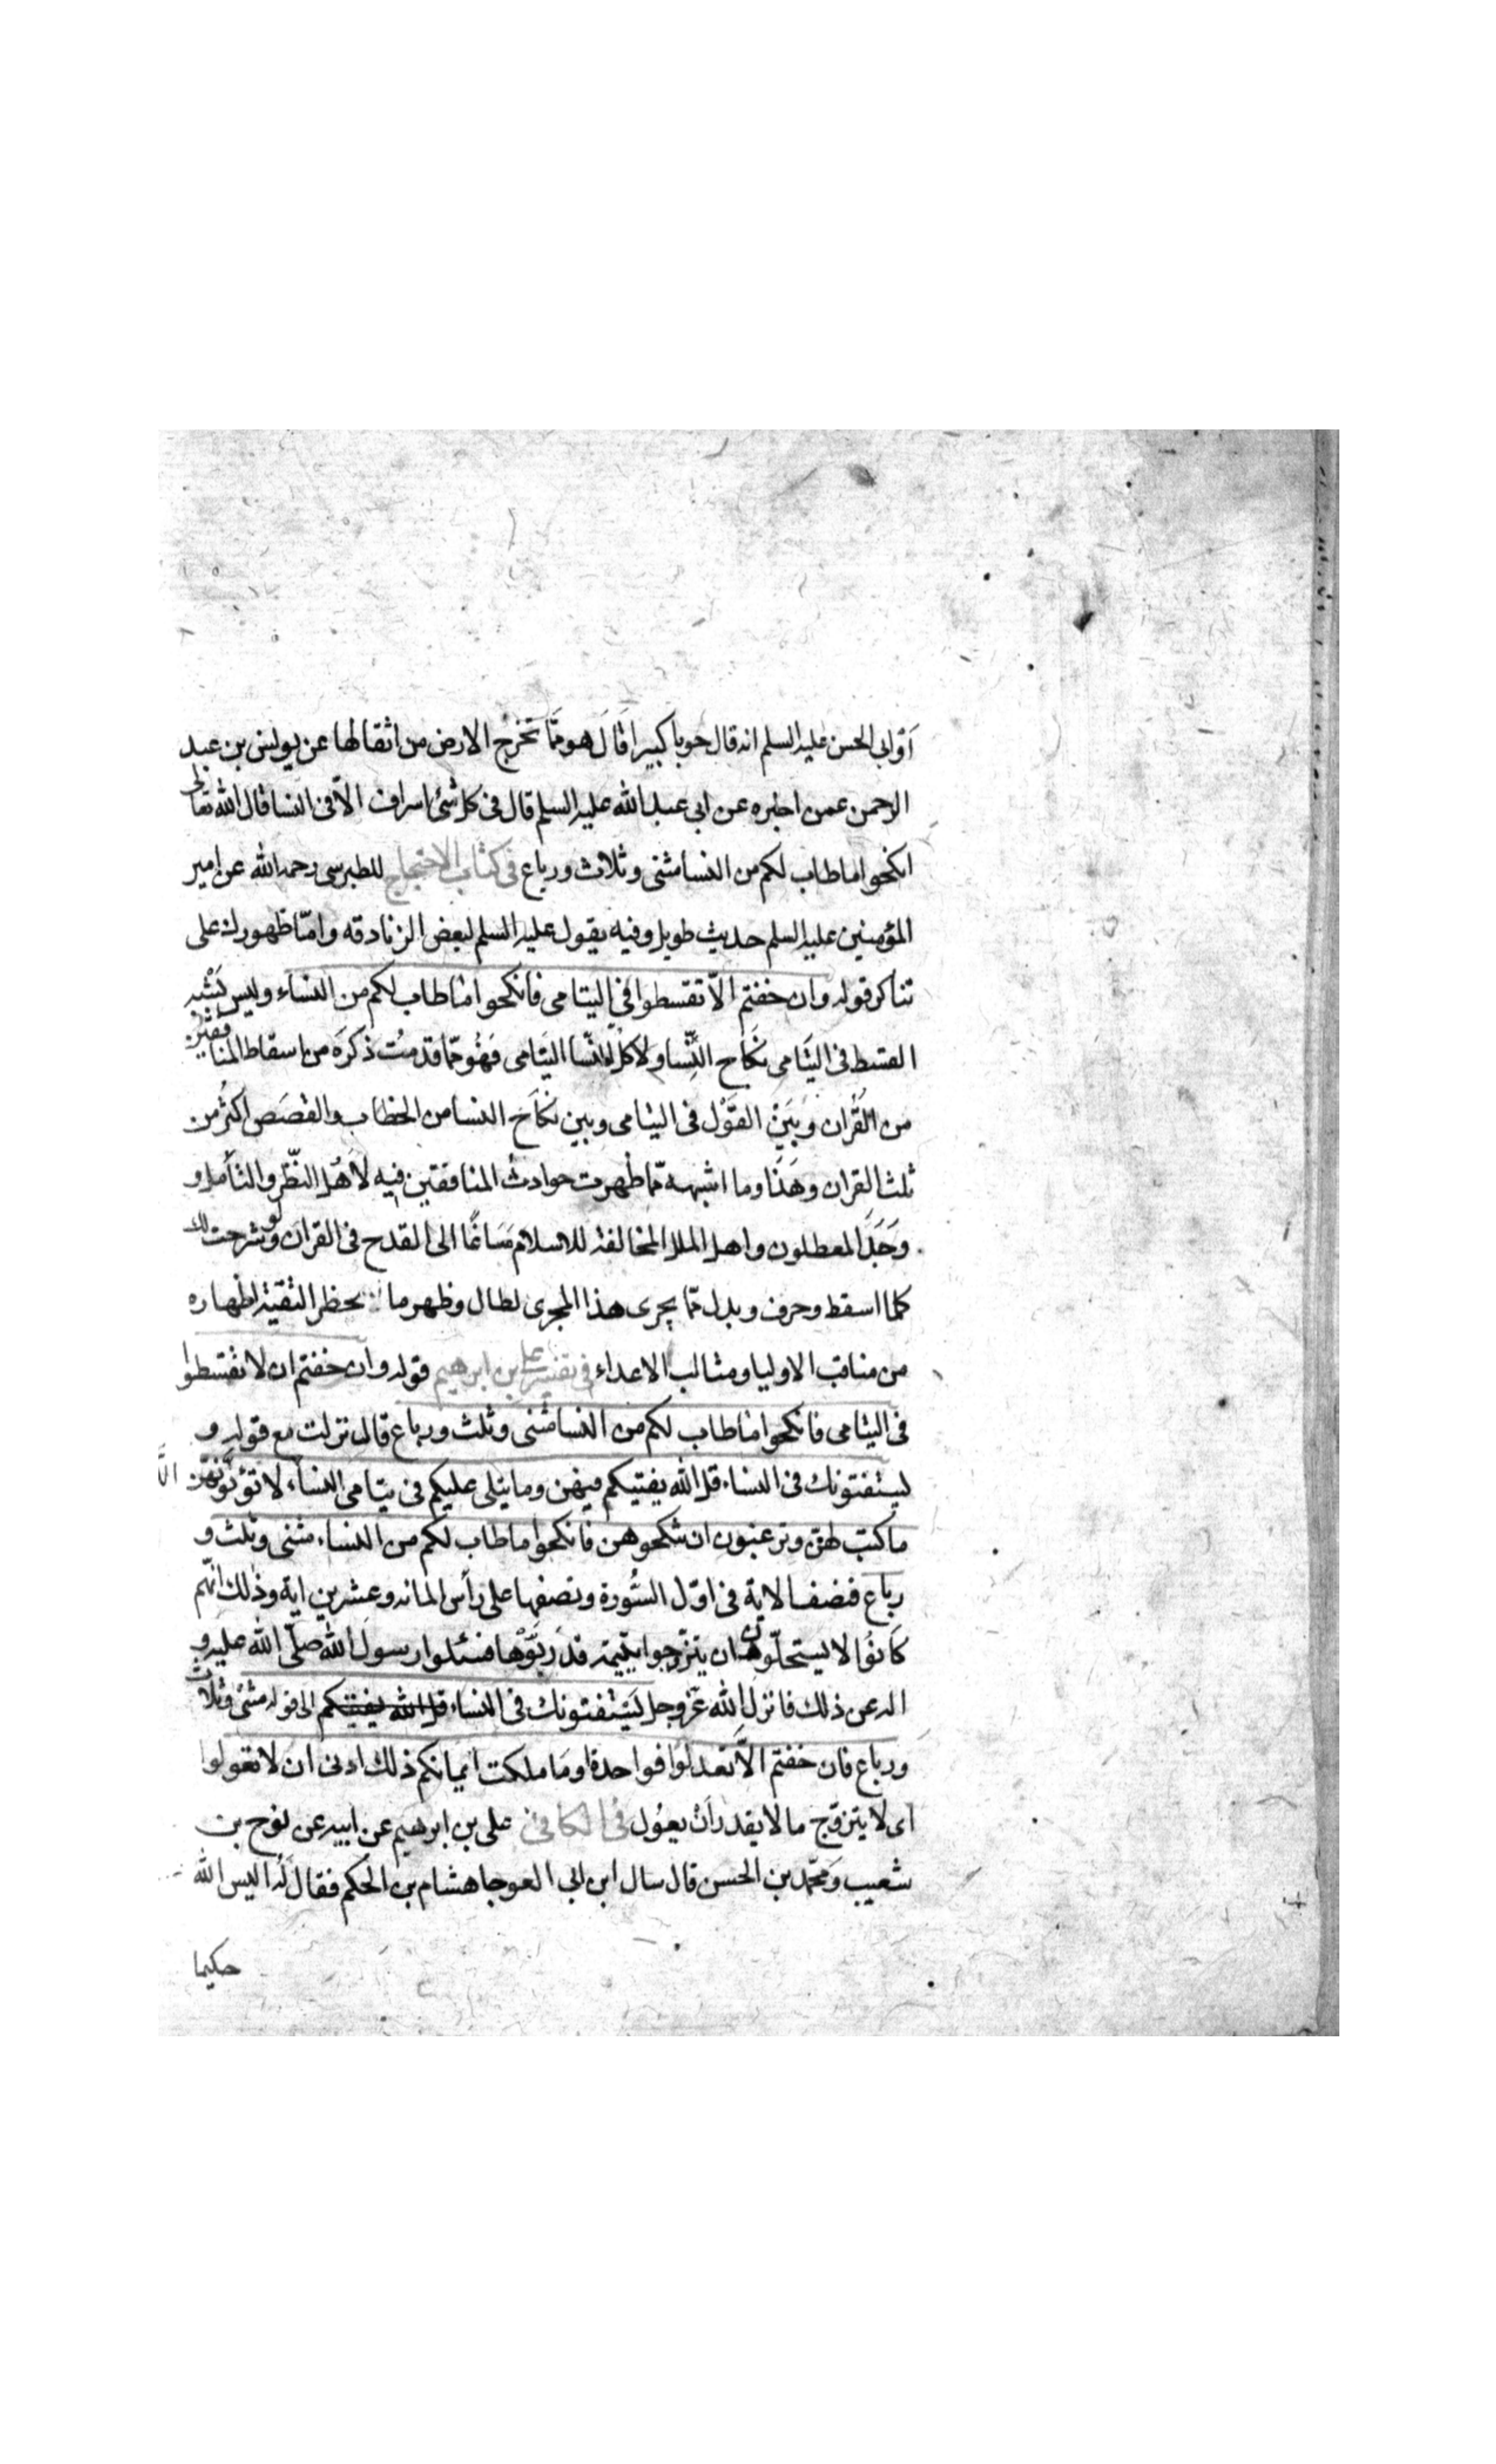 أو ابى الحسن عليه السلم انه قال حوبا كبيرا قال هو مما تخرج الارض من اثقالها عن يونس بن عبد
الرحمن عمن اخبره عن ابى عبد الله عليه السلم قال فى كل شئ اسراف الا فى النسا قال الله تعالى
انكحوا ما طاب لكم من النسا مثنى وثلاث ورباع فى كتاب الاحتجاج للطبرسى رحمه الله عن امير
المؤمنين عليه السلم حديث طويل وفيه يقول عليه السلم لبعض الزنادقه وامّا ظهورك على
تناكر قوله وان خفتم الاّ تقسطوا فى اليتامى فانكحوا ما طاب لكم من النساء وليس يشبه
القسط فى اليتامى نكاح النّسا ولا كل النّسا اليتامى فهو ممّا قدمت ذكره من اسقاط المنافقين
من القران وبين القول فى اليتامى وبين نكاح النسا من الخطاب والقصص اكثر من
ثلث القران وهذا وما اشبهه ممّا ظهرت حوادث المنافقين فيه لاهل النّظر والتأمل و
وجد المعطلون واهل الملل المخالفة للاسلام مساغا الى القدح فى القران ولو شرحت لك
كلما اسقط وحرف وبدل ممّا يجرى هذا المجرى لطال وظهر ما يحظر التقية اظهاره
من مناقب الاوليا ومثالب الاعداء فى تفسير على بن ابرهيم قوله وان خفتم ان لا تقسطوا
فى اليتامى فانكحوا ما طاب لكم من النسا مثنى وثلث ورباع قال نزلت مع قوله و
يستفتونك فى النساء قل الله يفتيكم فيهن وما يتلى عليكم فى يتامى النساء لا تؤتونهنّ
ما كتب لهنّ وترغبون ان تنكحوهن فانكحوا ما طاب لكم من النساء مثنى وثلث و
رباع فنصف الاية فى اوّل السّورة ونصفها على رأس المائه وعشرين اية وذلك انّهم
كانوا لا يستحلّون ان يتزوجوا يتيمة قد ربّوها فسئلوا رسول الله صلّى الله عليه و
اله عن ذلك فانزل الله عزوجل يستفتونك فى النساء قل الله يفتيكم الى قوله مثنى وثلاث
ورباع فان خفتم الاّ تعدلوا فواحدة او ما ملكت ايمانكم ذلك ادنى ان لا تعولوا
اى لا يتزوّج ما لا يقدر ان يعول فى الكافى على بن ابرهيم عن ابيه عن نوح بن
شعيب ومحمّد بن الحسن قال سال ابن ابى العوجا هشام بن الحكم فقال له اليس الله
حكيما